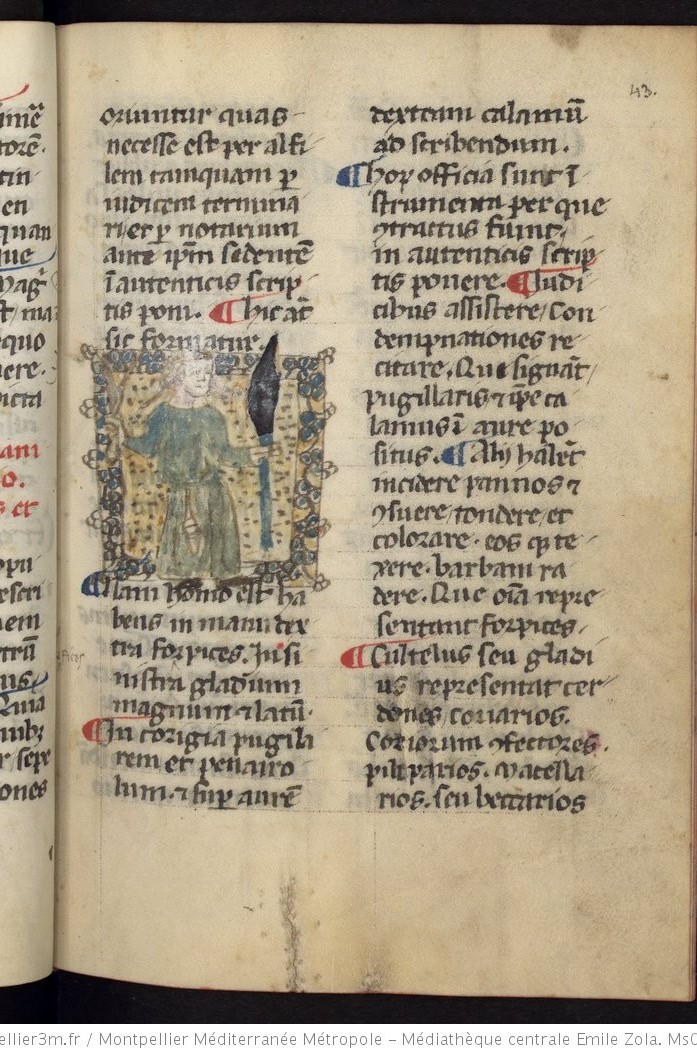 43.
oriuntur quas
necesse est per alfi
lem tamquam p̱
iudicem termina
ri et p̱ notarium
ante ip̄m sedentē
ī autenticis scrip
tis poni. ¶ hic aūt
sic formatur.
¶ Nam homo est ha
bens in manu dex
tra forpices. In si
nistra gladium
magnum ⁊ latū.
¶ In corigia pugila
rem et pennaro
lum. ⁊ sup̱ aurē
dexteram calamū
ad scribendum.
¶ hoꝝ officia sunt ī
strumenta per que
ꝯtractus fiunt
in autenticis scrip
tis ponere. ¶ Iudi
cibus assistere. Con
dempnationes re
citare. Que signāt
pugillaris ⁊ ip̄e ca
lamus ī aure po
situs. ¶ Alÿ habēt
incidere pannos ⁊
ꝯsuere, tondere, et
colorare. eos qꝫ te
xere. barbam ra
dere. Que oīa repre
sentant forpices.
¶ Cultelus seu gladi
us representat cer
dones, coriarios.
Coriorum ꝯfectores.
pilipparios. Macella
rios. seu beccarios
ellier3m.fr / Montpellier Méditerranée Métropole – Médiathèque centrale Emile Zola. MsC